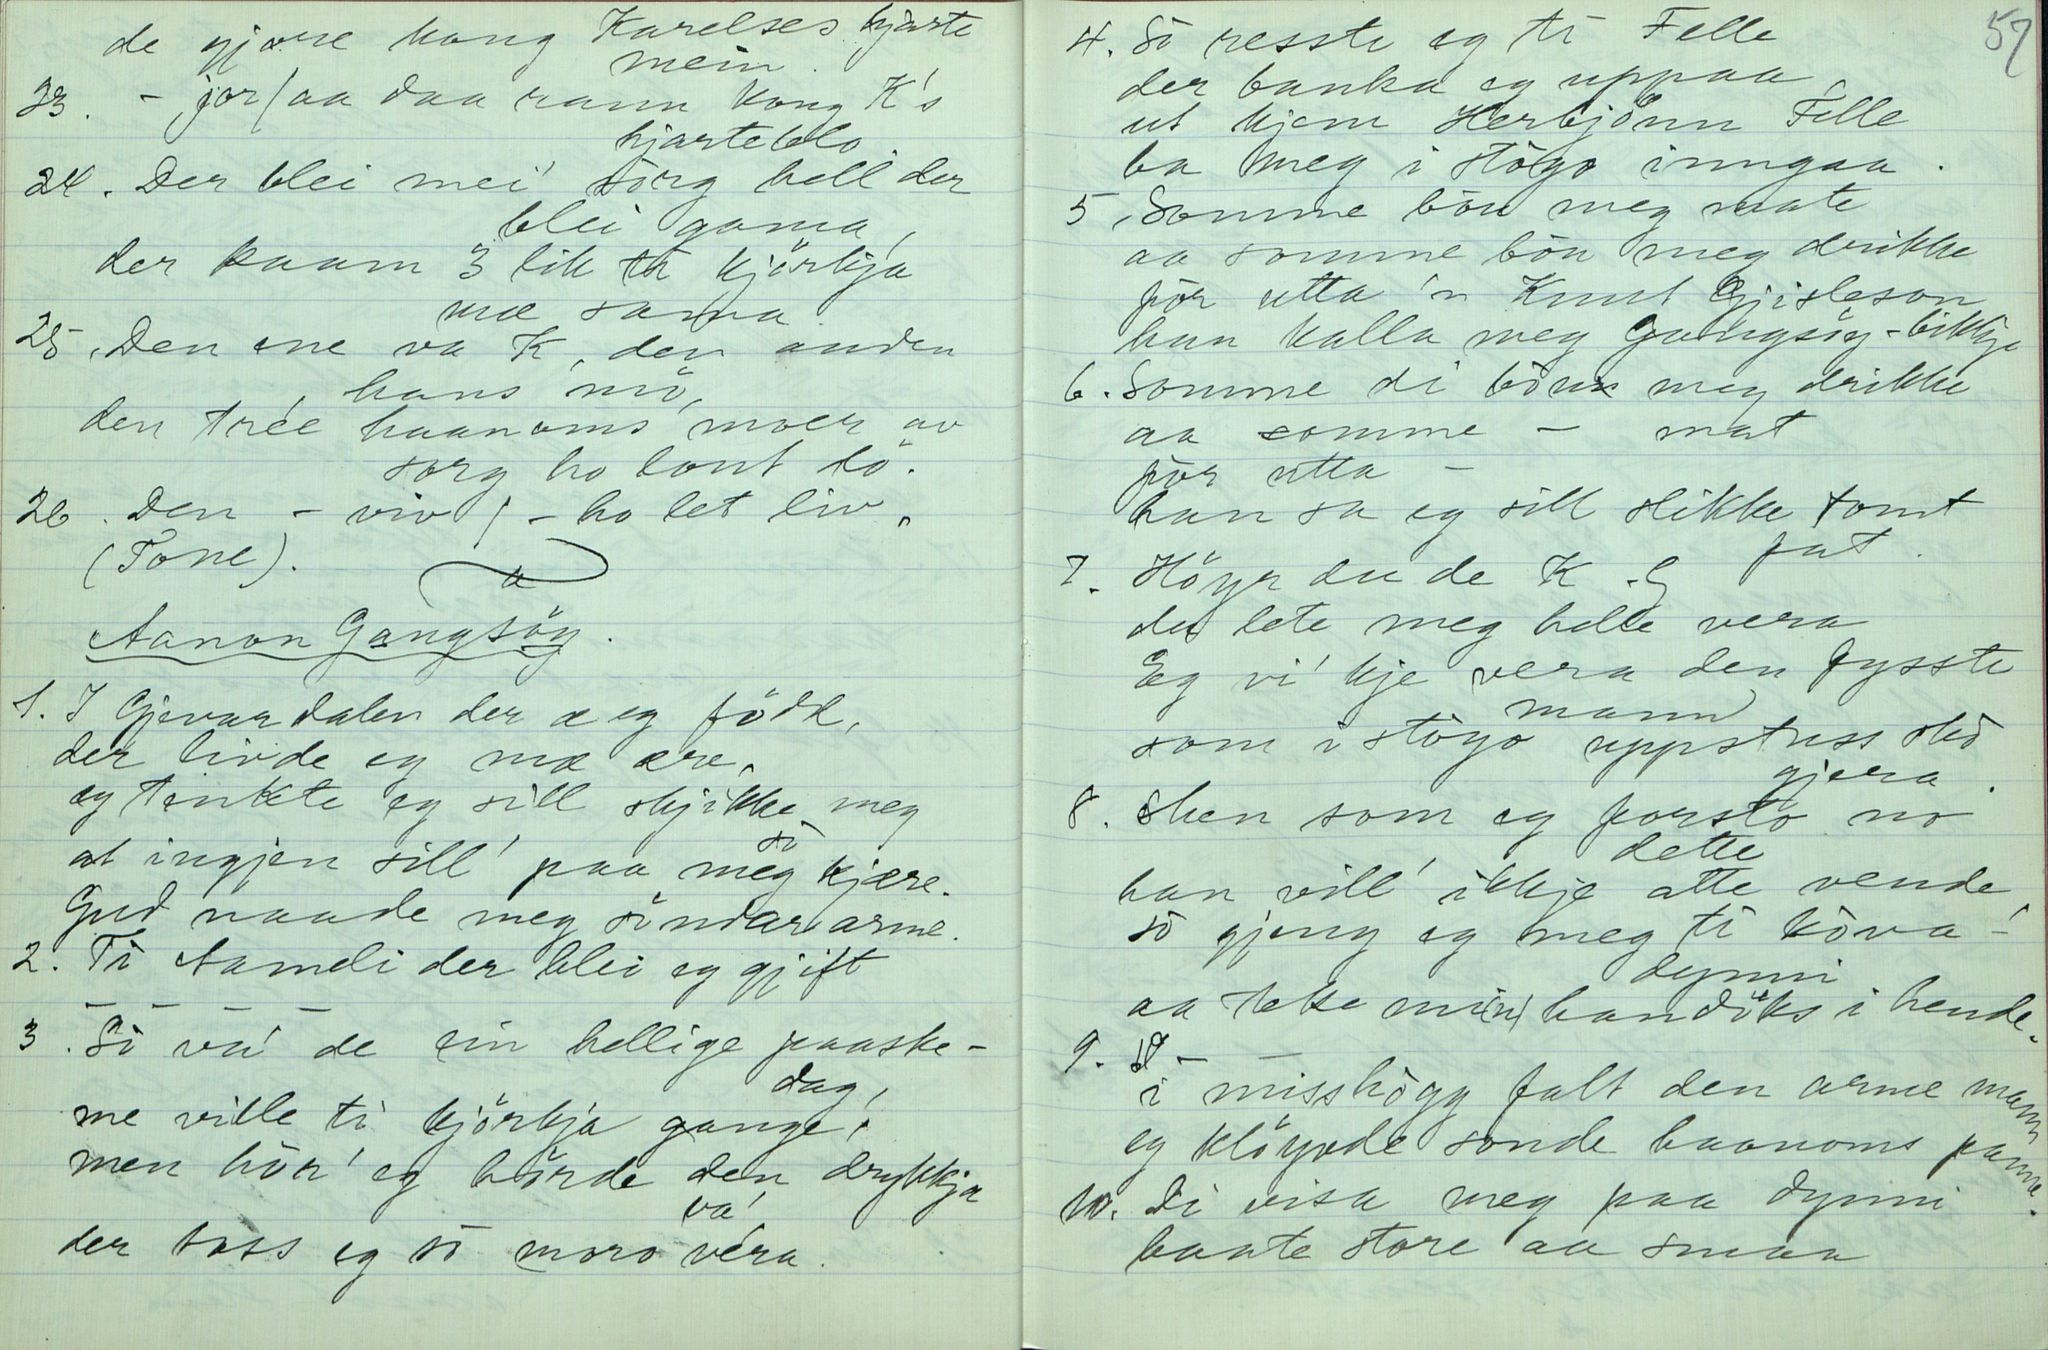 de gjorre kong Karelses hjarte
mein.
23. – jor / aa daa rann kong K's
hjarteblo.
24. Der blei mei' sorg hell der
blei gama,
der kaam 3 lik ti kjörkja
mæ sama.
25. Den ene va K, den anden
hans mö,
den trée haanoms moer av
sorg ho lout dö.
26. Den – viv / – ho let liv.
(Tone).
Aanon Gangsöy.
1. I Gjevardalen der æ eg född,
der livde eg mæ ære,
eg tenkte eg sill skjikke meg
så
at ingjen sill' paa meg kjære.
Gud naade meg söndar arme.
2. Ti Aamdli der blei eg gjift
– – – –
3. Så va' de ein hellige paaske-
dag,
me ville ti kjörkja gange,
men hör' eg hörde den drykkja
va'
der toss eg så moro véra.
57
4. Så resste eg ti Felle
der banka eg uppaa
ut kjem Herbjönn Felle
ba meg i stogo inngaa.
5. Somme bön meg mate
aa somme bön meg drikke
för utta 'n Knut Gjisleson
han kalla meg Gangsöy-bikkje
6. Somme di bön meg drikke
aa somme – mat
för utta –
han sa eg sill slikke tomt
fat.
7. Höyr du de K. G
du lete meg helle vera
Eg vi' kje vera den fysste
mann
som i stogo uppstuss ska
gjera.
8. Men som eg forsto no
dette
han vill' ikkje atte vende,
så gjeng eg meg ti köva-
dynni
aa teke mi(n) handöks i hende.
9. D – –
i misshogg falt den arme mann
eg klöyvde sonde haanoms panne.
10. Di visa meg paa dynni
baate store aa smaa